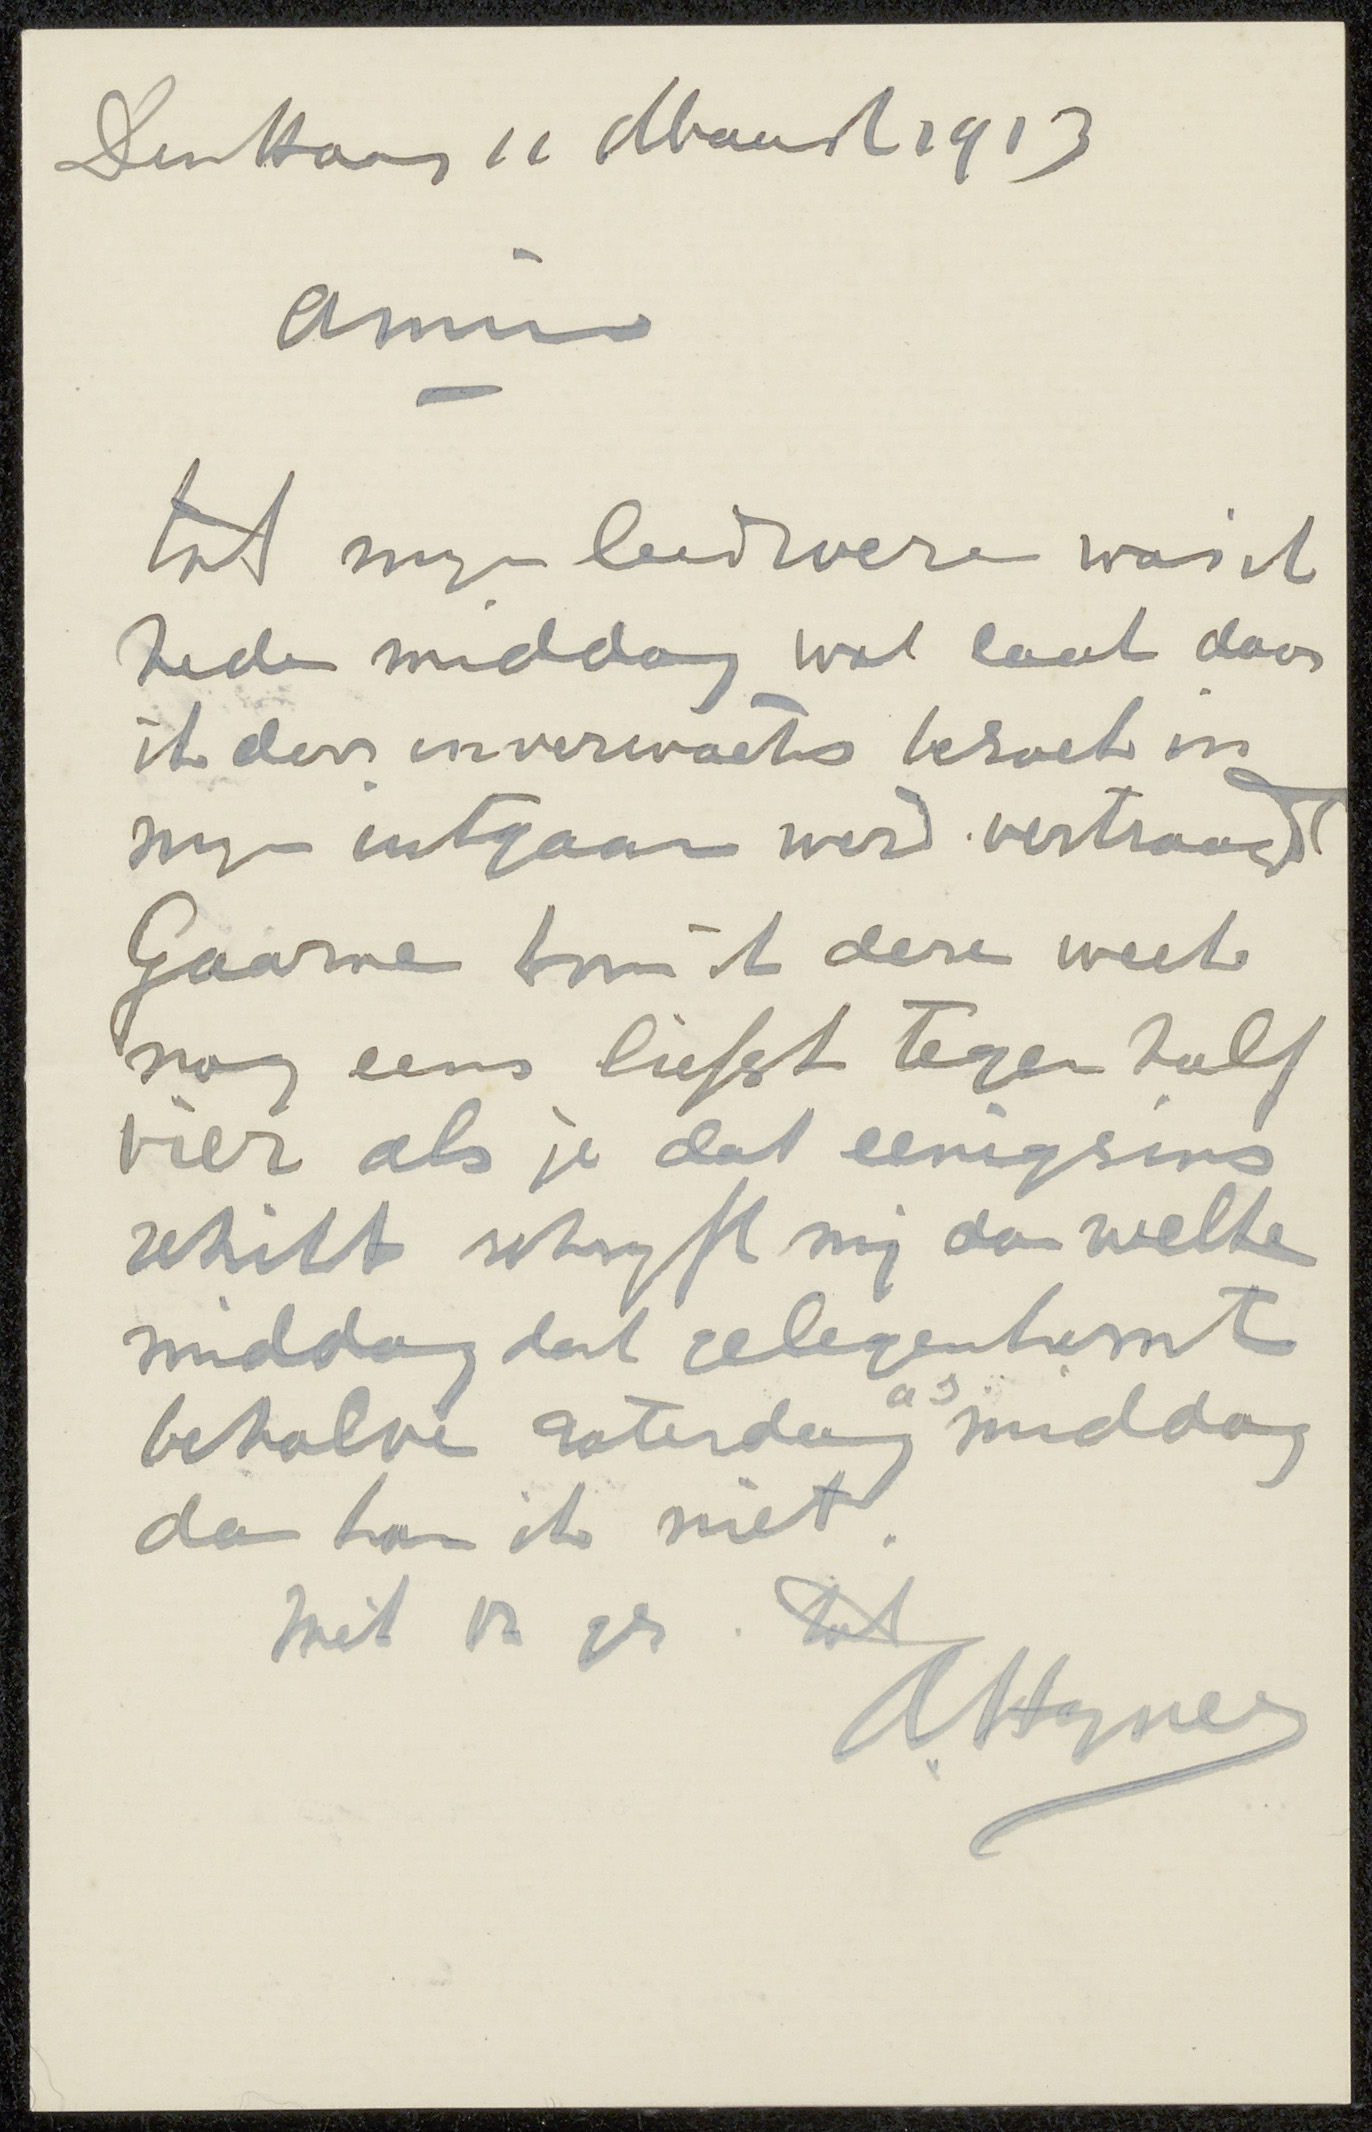 Den Haag 11 Maart 1913
Amice
tot myn leedwezen was ik
heden middag wat laat daar
ik door onverwachts bezoek in
myn uitgaan werd vertraagd
Gaarne kom ik deze week
nog eens liefst tegen half
vier als je dat eenigsins
schikt schryft mij dan welke
middag dat gelegen komt
behalve zaterdag as middag
dan kan ik niet.
Met vr gr. tot